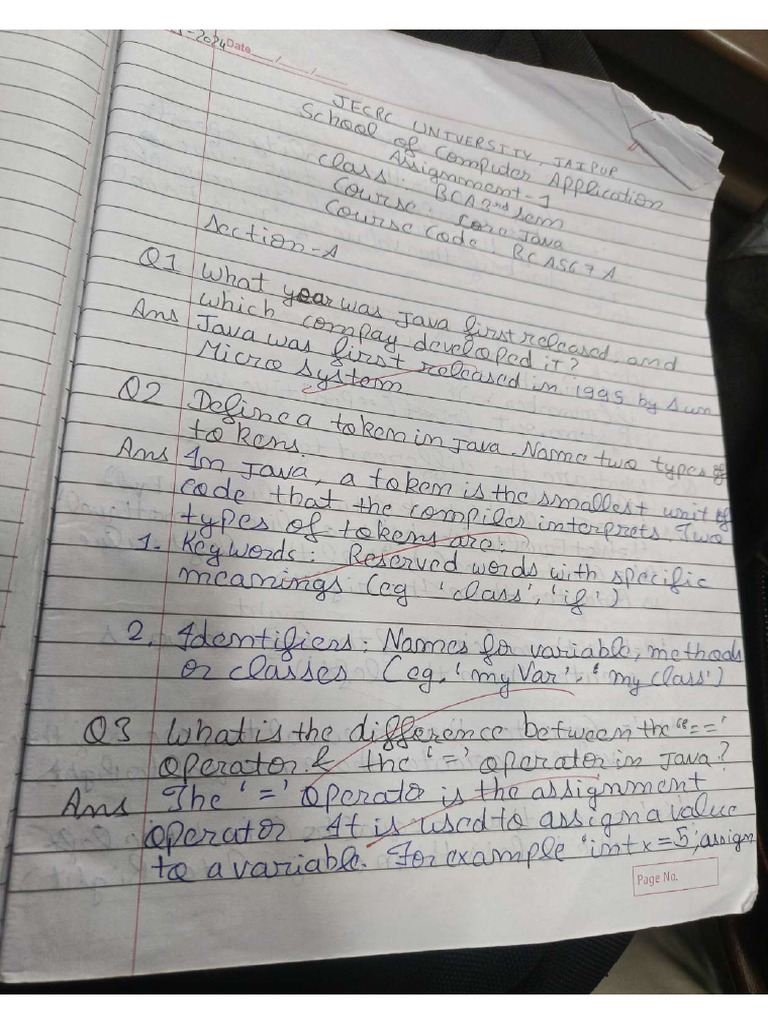 -2024 Date __/__/__
JECRC UNIVERSITY, JAIPUR
School of Computer Application
Assignment-1
Class : BCA 2nd Sem
Course : Core Java
Course Code :
Section-A
Q1 What year was Java first released and
which compay developed it?
Ans Java was first released in 1995 by Sun
Micro System
Q2 Define a token in Java. Name two types of
tokens.
Ans In Java, a token is the smallest unit of
code that the compiler interprets. Two
types of tokens are:
1. Keywords : Reserved words with specific
meanings (eg 'class', 'if')
2. Identifiers : Names for variable, methods
or classes (eg, 'myVar', 'my class')
Q3 What is the difference between the '=='
operator & the '=' operator in Java?
Ans The '=' operator is the assignment
operator. It is used to assign a value
to a variable. For example 'int x = 5; assign
Page No.